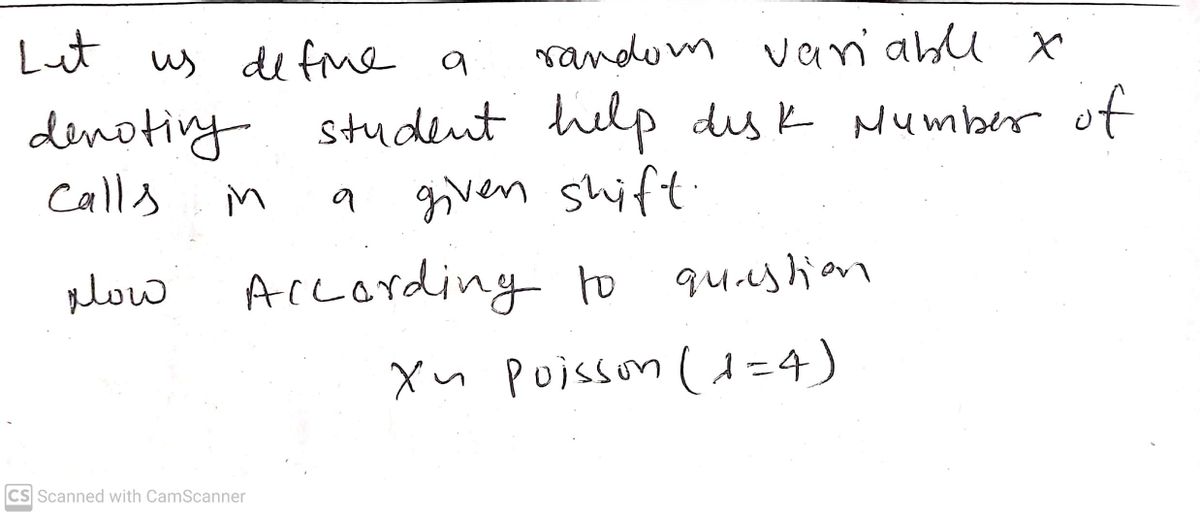 Let us define a random variable x
denoting student help desk Number of
Calls in a given shift.
Now According to question
X ~ Poisson (λ=4)
CS Scanned with CamScanner